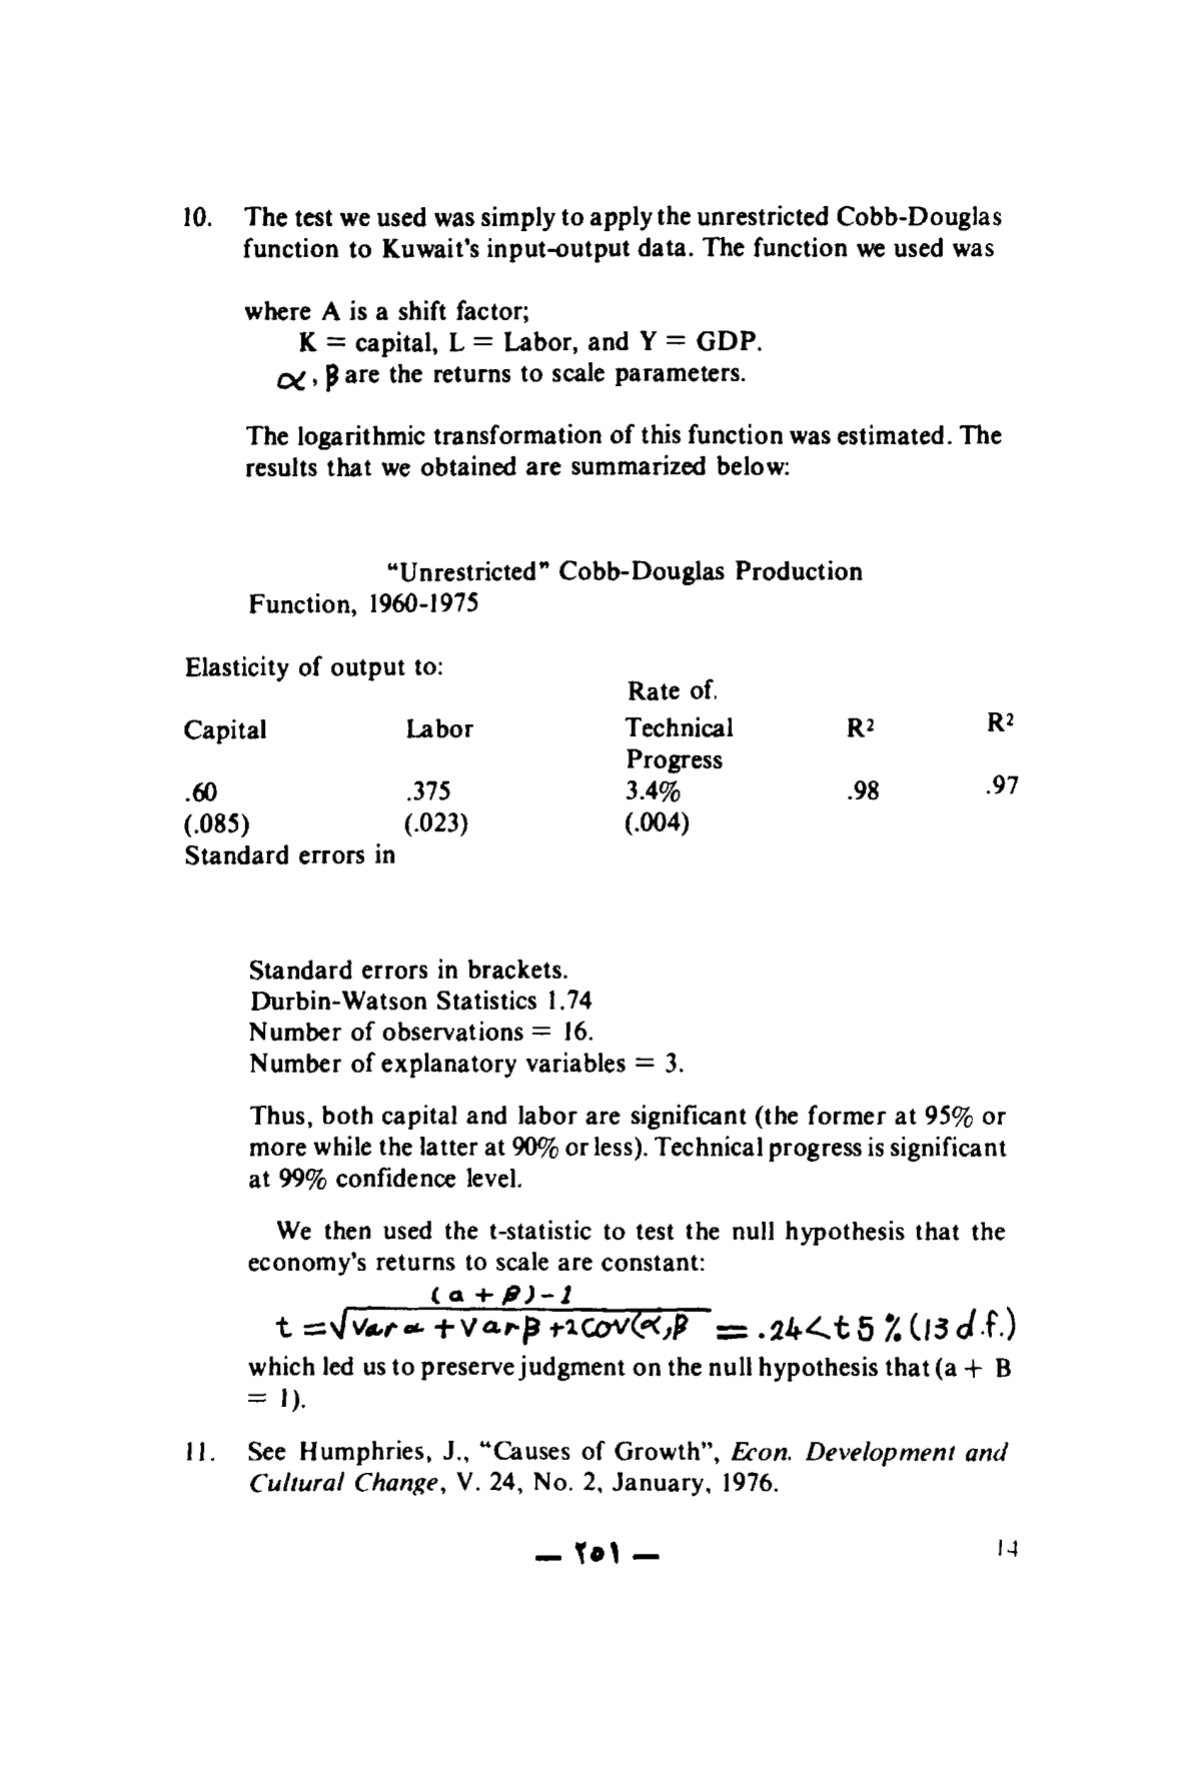 10. The test we used was simply to apply the unrestricted Cobb-Douglas
function to Kuwait's input-output data. The function we used was
where A is a shift factor;
K = capital, L = Labor, and Y = GDP.
α, β are the returns to scale parameters.
The logarithmic transformation of this function was estimated. The
results that we obtained are summarized below:
“Unrestricted” Cobb-Douglas Production
Function, 1960-1975
Elasticity of output to:
Rate of.
Capital Labor Technical R² R²
Progress
.60 .375 3.4% .98 .97
(.085) (.023) (.004)
Standard errors in
Standard errors in brackets.
Durbin-Watson Statistics 1.74
Number of observations = 16.
Number of explanatory variables = 3.
Thus, both capital and labor are significant (the former at 95% or
more while the latter at 90% or less). Technical progress is significant
at 99% confidence level.
We then used the t-statistic to test the null hypothesis that the
economy's returns to scale are constant:
(a + β) - 1
t = √Var α + Var β + 2 COV(α, β = .24 < t 5 % (13 d.f.)
which led us to preserve judgment on the null hypothesis that (a + B
= 1).
11. See Humphries, J., “Causes of Growth”, Econ. Development and
Cultural Change, V. 24, No. 2, January, 1976.
— ٢٥١ — 14